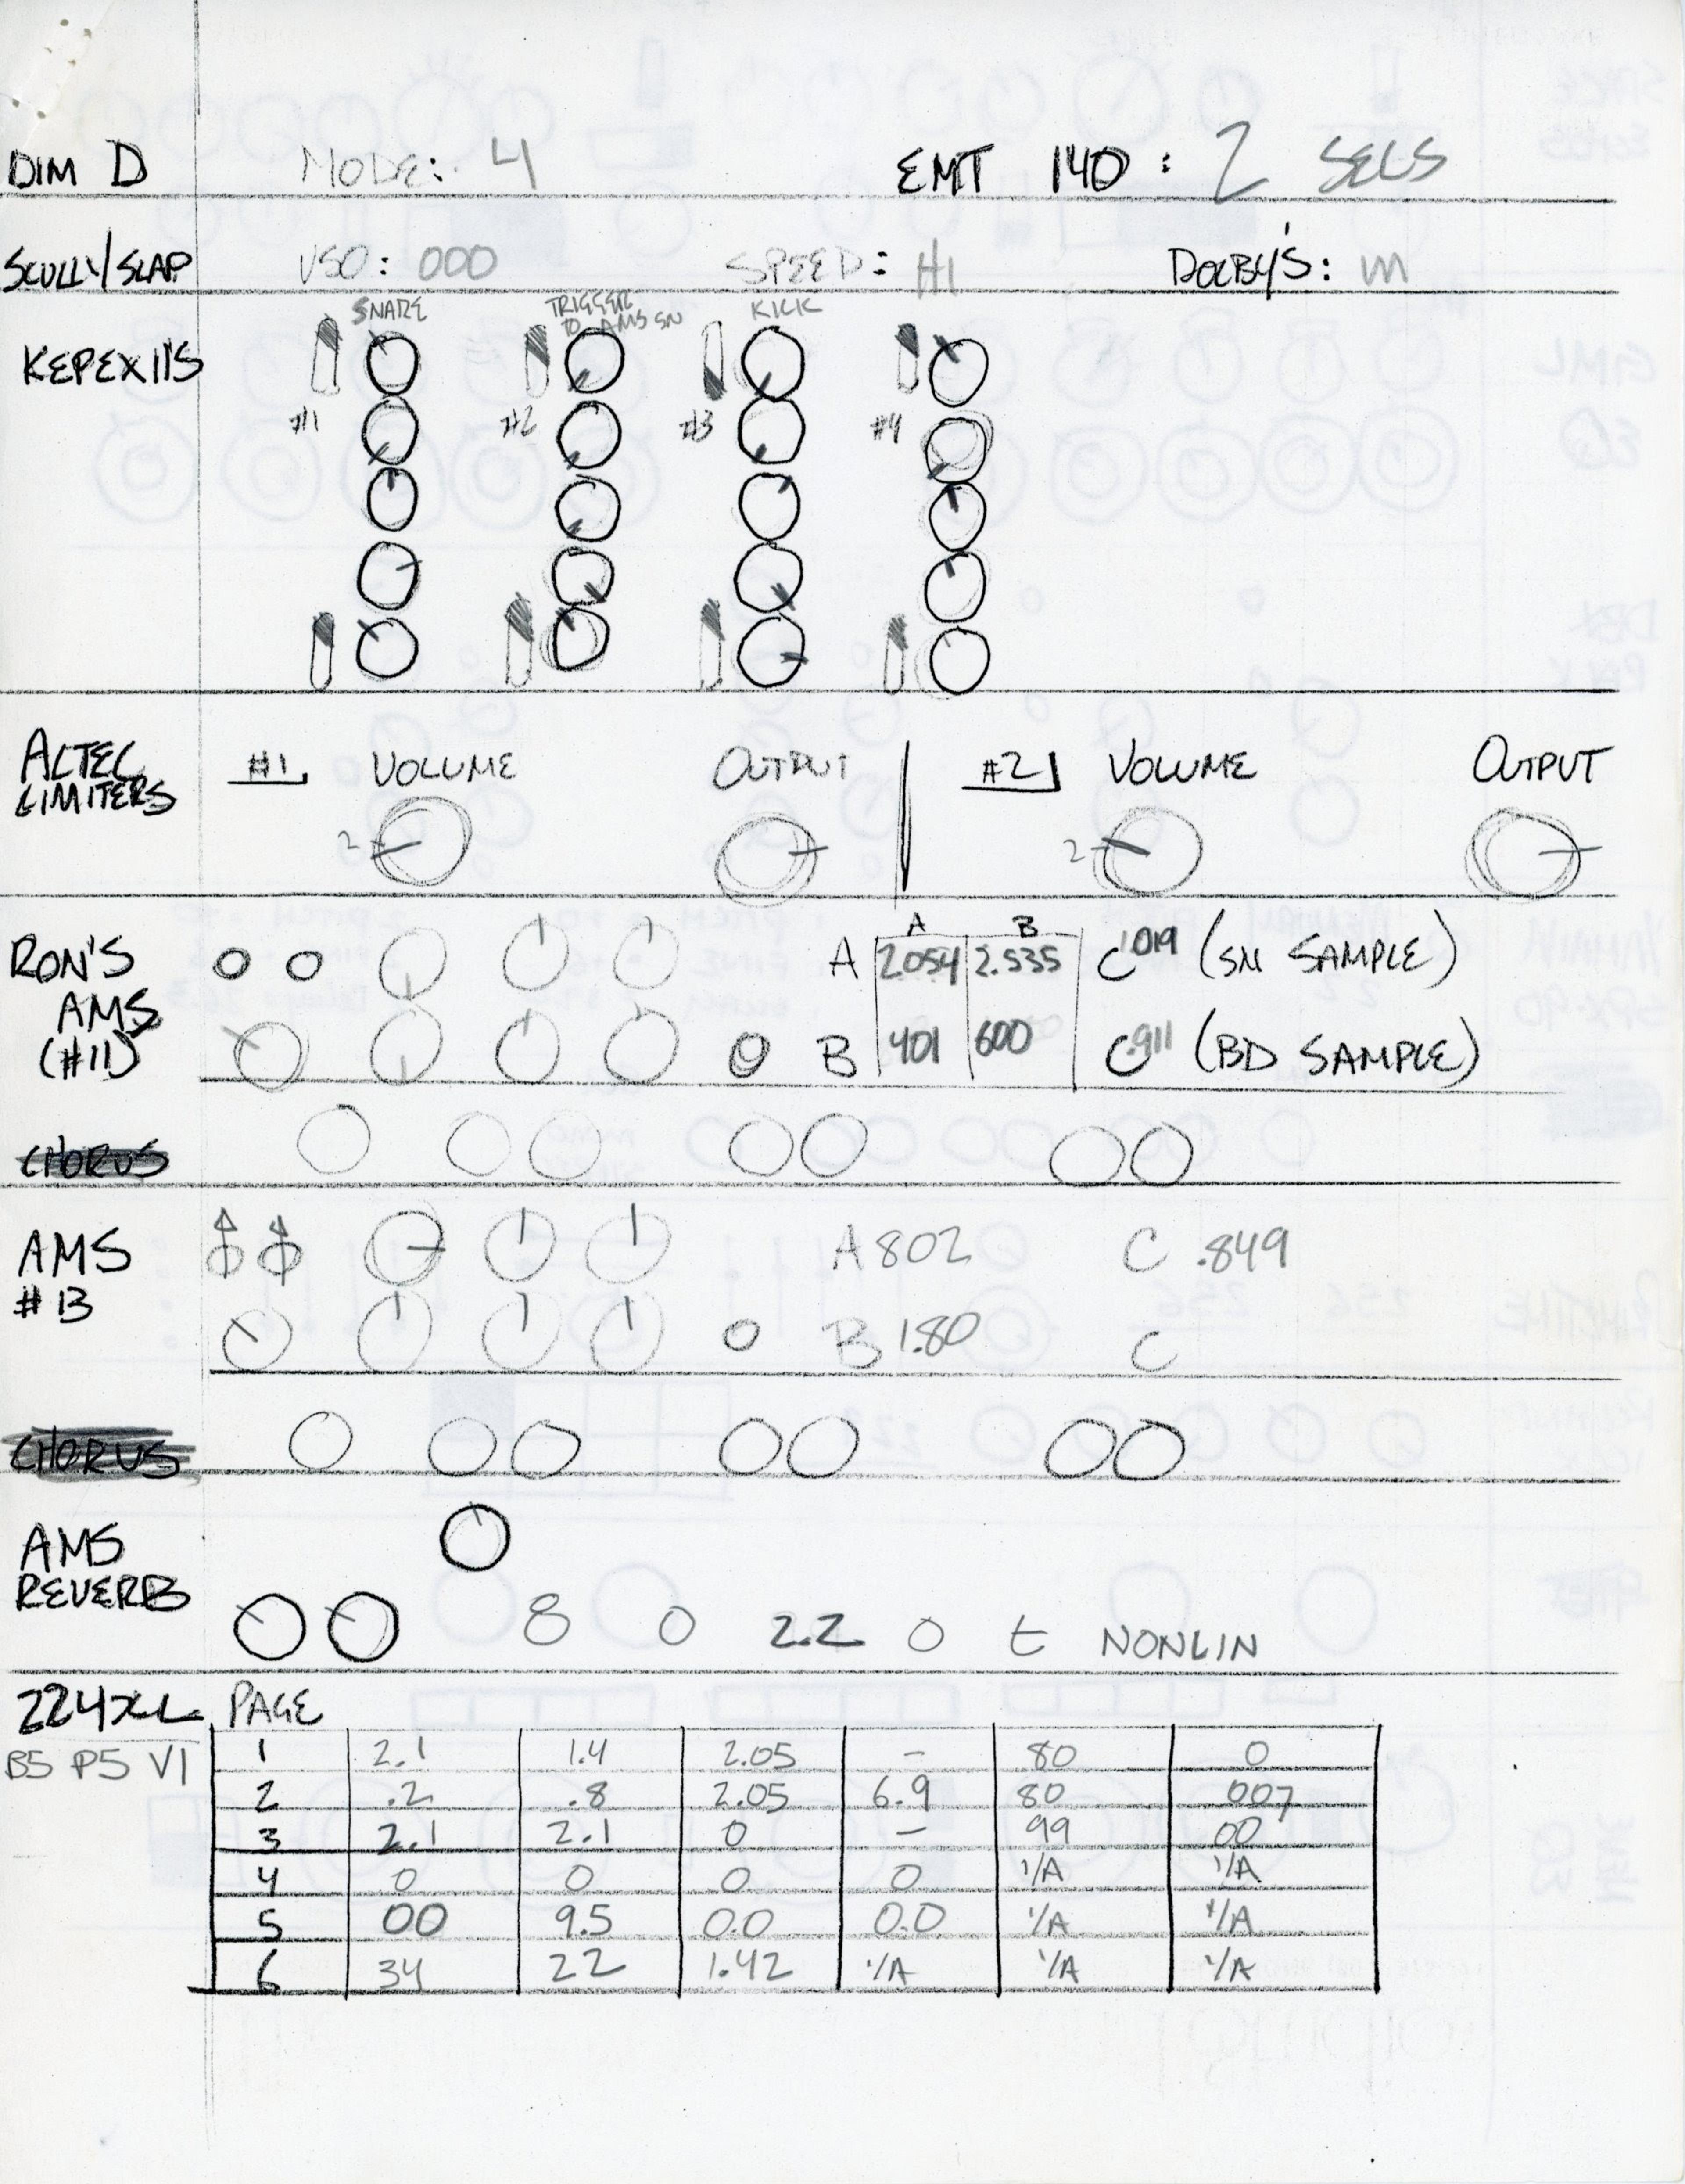 DIM D MODE: 4 EMT 140 : 2 SECS
SCULLY/SLAP VSO: 000 SPEED: HI DOLBY'S: IN
SNARE TRIGGER TO AMS SN KICK
KEPEX II'S
#1 #2 #3 #4
ALTEC LIMITERS #1 VOLUME OUTPUT #2 VOLUME OUTPUT
2 2
A B
RON'S AMS (#11) A 2.054 2.535 C 1.019 (SN SAMPLE)
B 401 600 C .911 (BD SAMPLE)
CHORUS
AMS #13 A 802 C .849
B 1.80 C
CHORUS
AMS REVERB
8 0 2.2 0 t NONLIN
224XL PAGE
B5 P5 V1
1 2.1 1.4 2.05 – 80 0
2 .2 .8 2.05 6.9 80 007
3 2.1 2.1 0 – 99 00
4 0 0 0 0 1/A 1/A
5 00 9.5 0.0 0.0 1/A 1/A
6 34 22 1.42 1/A 1/A 1/A